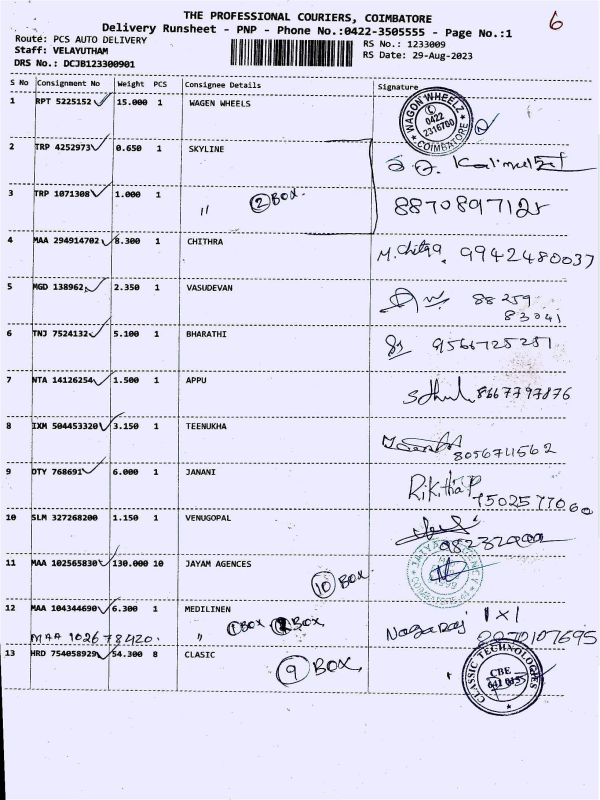 THE PROFESSIONAL COURIERS, COIMBATORE
6
Delivery Runsheet - PNP - Phone No.:0422-3505555 - Page No.:1
Route: PCS AUTO DELIVERY
RS No.: 1233009
Staff: VELAYUTHAM
RS Date: 29-Aug-2023
DRS No.: DCJB123300901
S No Consignment No Weight PCS Consignee Details Signature
1 RPT 5225152 15.000 1 WAGEN WHEELS
WAGON WHEELZ 0422 2316700 COIMBATORE
2 TRP 4252973 0.650 1 SKYLINE
3 TRP 1071308 1.000 1 " 2 BOX.
4 MAA 294914702 8.300 1 CHITHRA M. Chitra 9942480037
5 MGD 138962 2.350 1 VASUDEVAN 88259
83041
6 TNJ 7524132 5.100 1 BHARATHI 9566725251
7 NTA 14126254 1.500 1 APPU 8667797876
8 IXM 504453320 3.150 1 TEENUKHA
8056711562
9 DTY 768691 6.000 1 JANANI Rikthia P
7502577060
10 SLM 327268200 1.150 1 VENUGOPAL
11 MAA 102565830 130.000 10 JAYAM AGENCES
10 BOX.
12 MAA 104344690 6.300 1 MEDILINEN
1 BOX BOX, Nagaraj 1 x 1
MAA 102678420. " 8870107695
13 HRD 754058929 54.300 8 CLASIC
9 BOX,
CLASSIC TECHNOLOGIES CBE